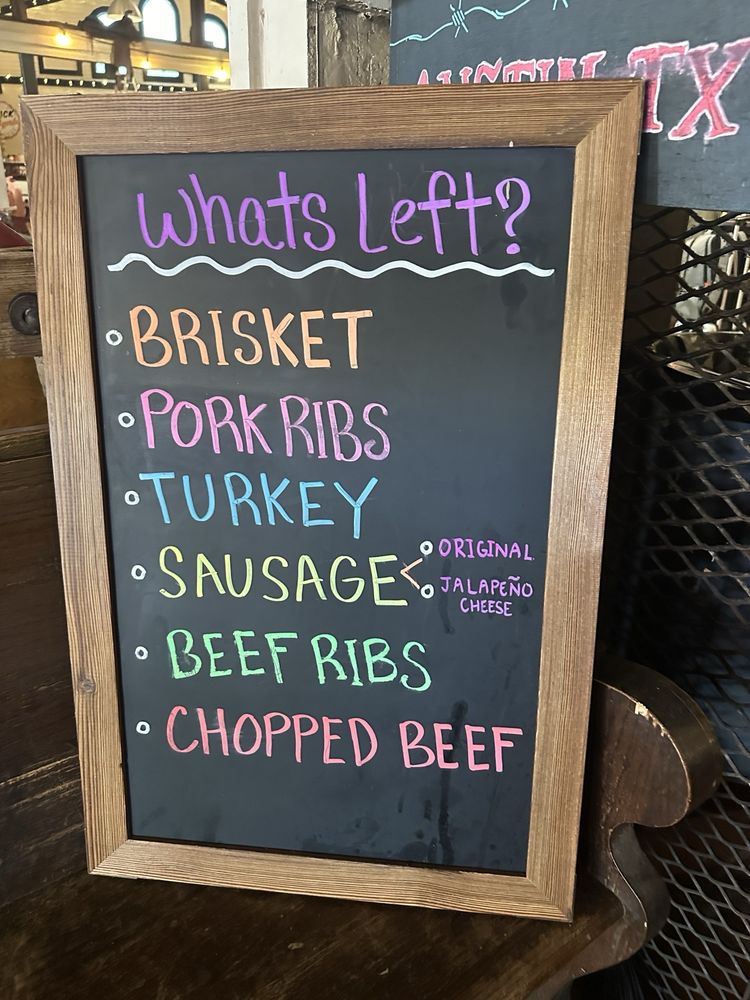 AUSTIN, TX
Whats Left?
BRISKET
PORK RIBS
TURKEY
SAUSAGE < ORIGINAL
JALAPEÑO
CHEESE
BEEF RIBS
CHOPPED BEEF